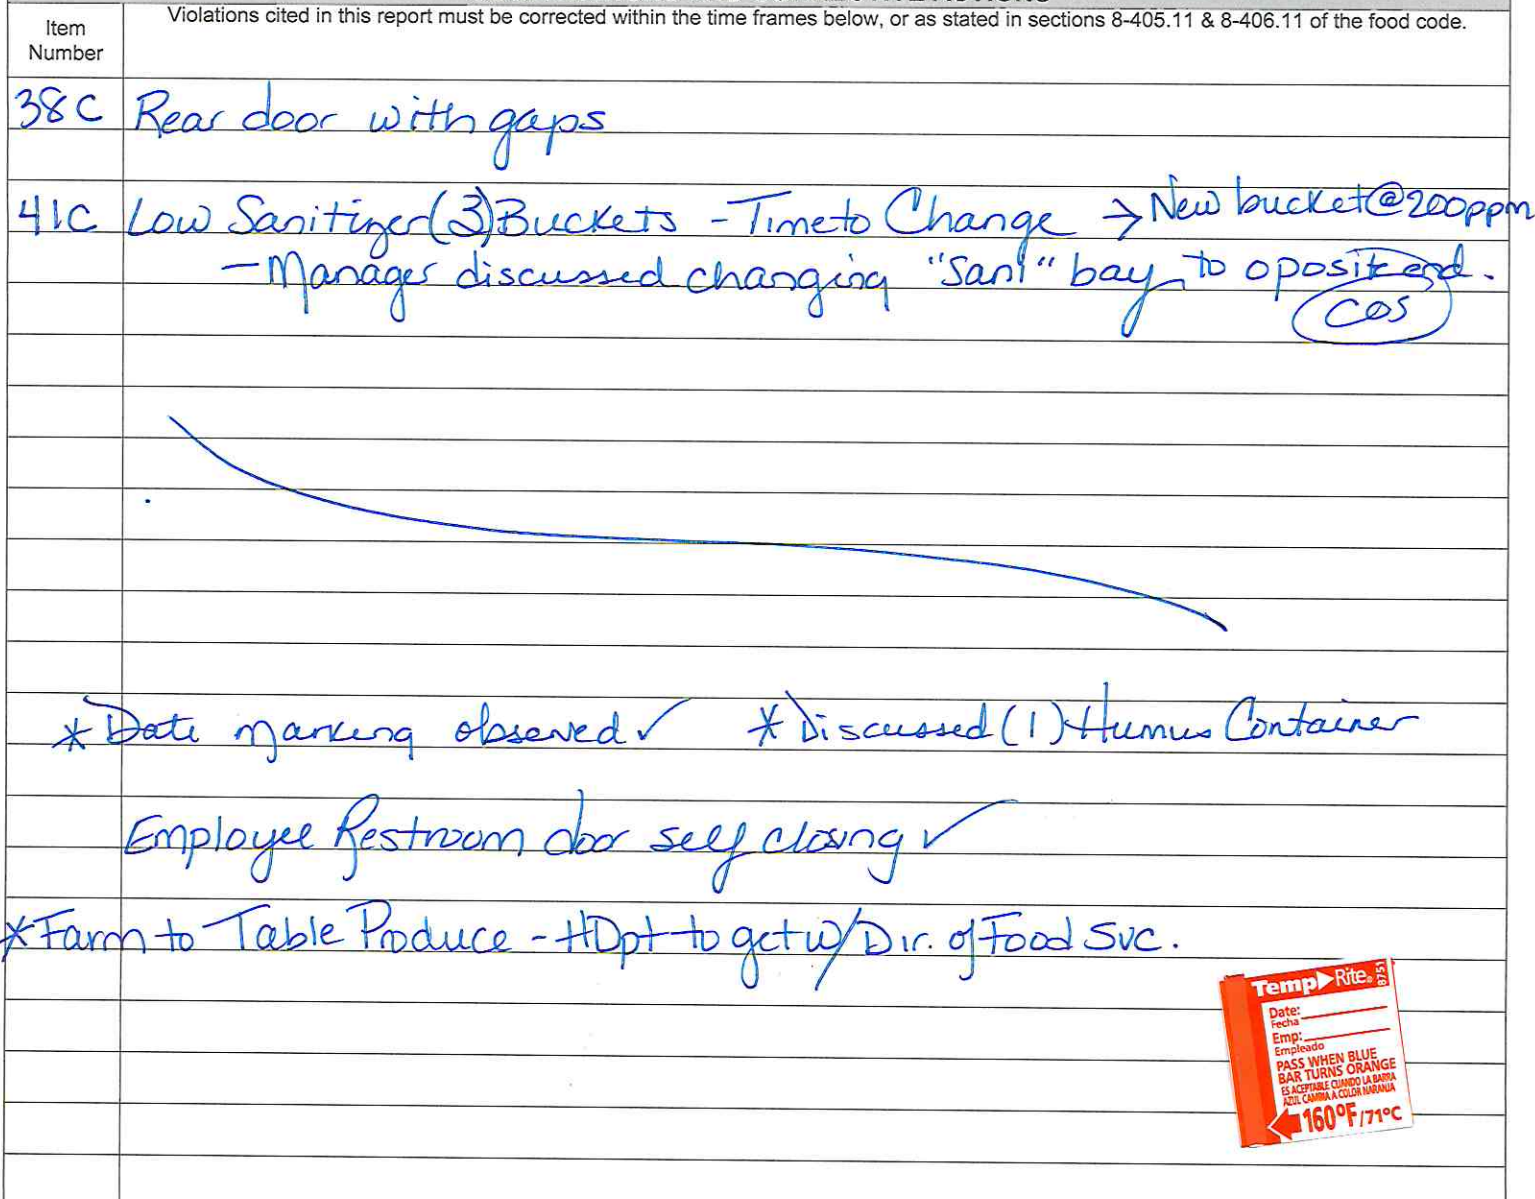 Violations cited in this report must be corrected within the time frames below, or as stated in sections 8-405.11 & 8-406.11 of the food code.
Item
Number
38C Rear door with gaps
41C Low Sanitizer (3) Buckets - Time to Change → New bucket @ 200ppm
- Manager discussed changing "Sani" bay to oposit end.
COS
* Date marking observed ✓ * Discussed (1) Humus Container
Employee Restroom door self closing ✓
* Farm to Table Produce - HDpt to get w/ Dir. of Food Svc.
Temp Rite® 8751
Date:
Fecha
Emp:
Empleado
PASS WHEN BLUE
BAR TURNS ORANGE
ES ACEPTABLE CUANDO LA BARRA
AZUL CAMBIA A COLOR NARANJA
160°F/71°C